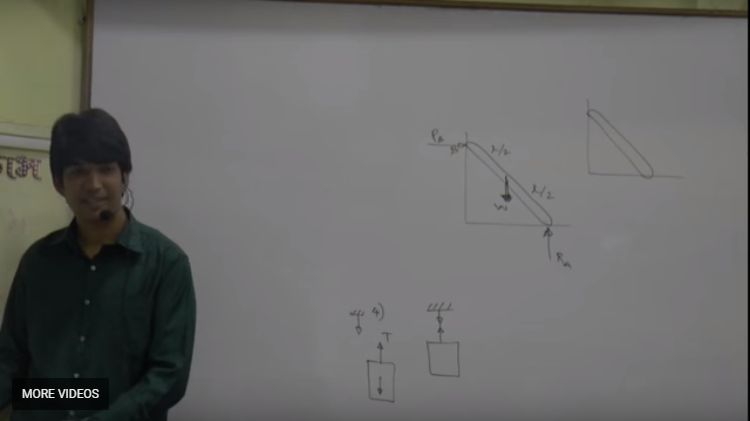 R_B
B
l/2
l/2
W
R_A
4)
T
MORE VIDEOS